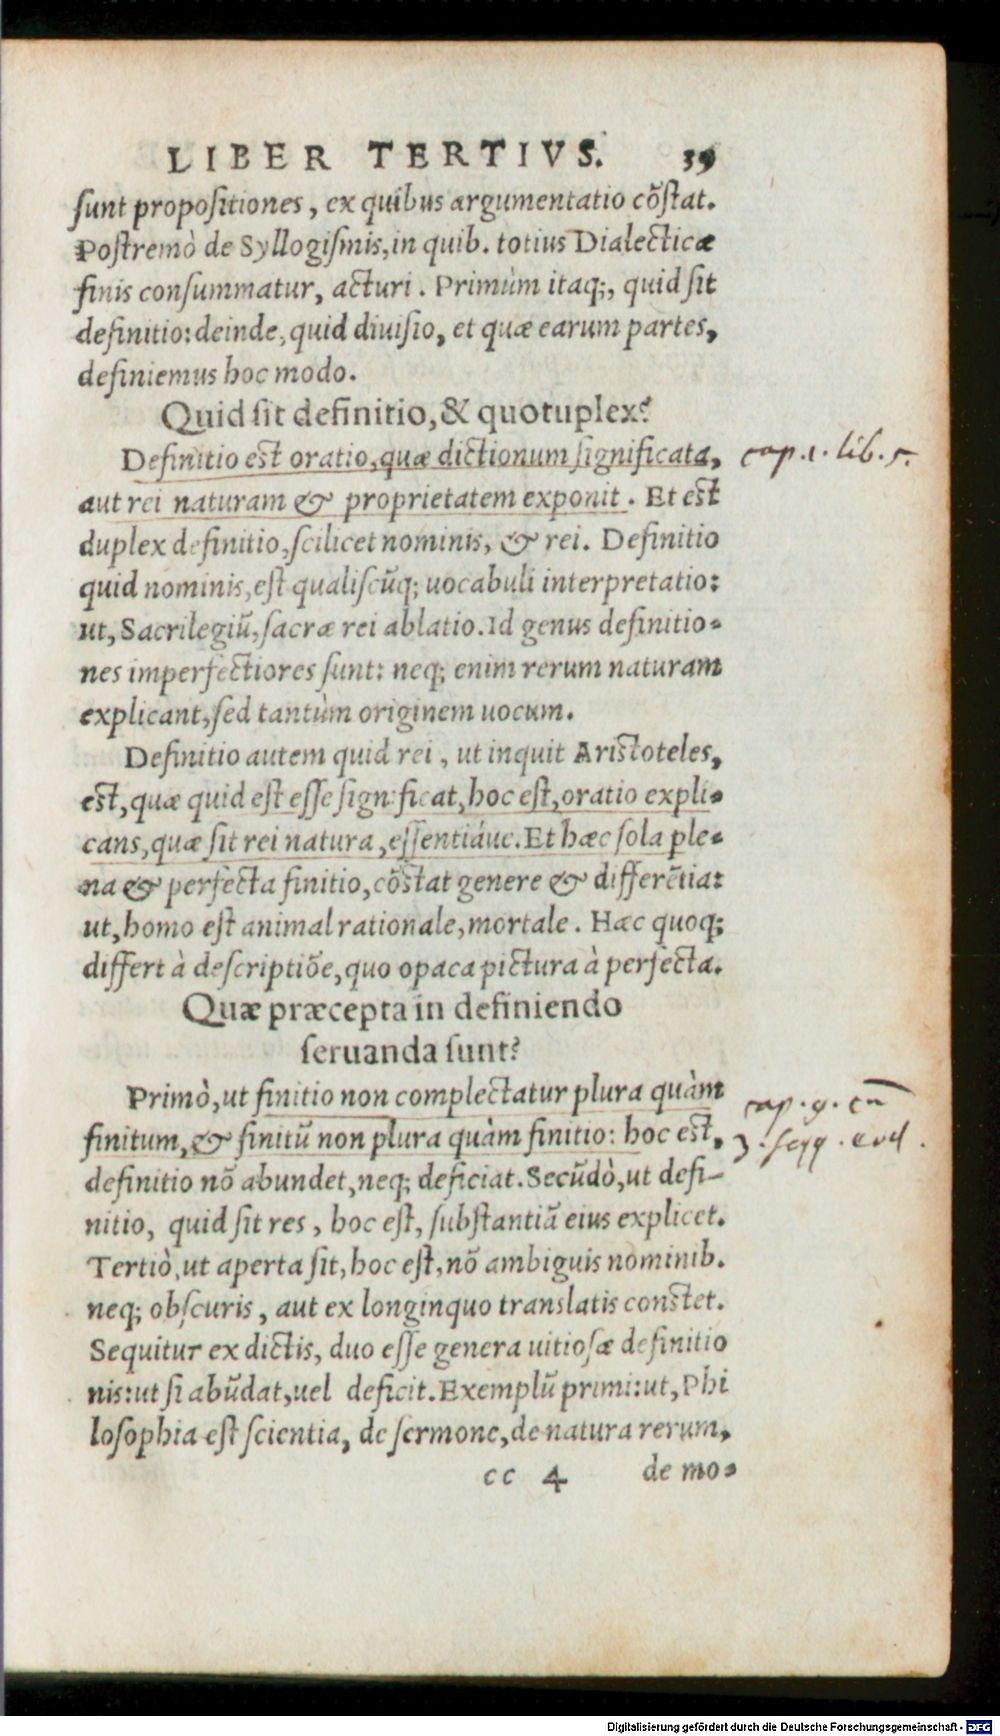 LIBER TERTIVS. 39
sunt propositiones, ex quibus argumentatio cõstat.
Postremò de Syllogismis, in quib. totius Dialecticæ
finis consummatur, acturi. Primùm itaq;, quid sit
definitio: deinde, quid diuisio, et quæ earum partes,
definiemus hoc modo.
Quid sit definitio, & quotuplex?
Definitio est oratio, quæ dictionum significata,
cap. 1. lib. 5.
aut rei naturam & proprietatem exponit. Et est
duplex definitio, scilicet nominis, & rei. Definitio
quid nominis, est qualiscũq; uocabuli interpretatio:
ut, Sacrilegiũ, sacræ rei ablatio. Id genus definitio-
nes imperfectiores sunt: neq; enim rerum naturam
explicant, sed tantùm originem uocum.
Definitio autem quid rei, ut inquit Aristoteles,
est, quæ quid est esse significat, hoc est, oratio expli-
cans, quæ sit rei natura, essentiáue. Et hæc sola ple-
na & perfecta finitio, cõstat genere & differẽtia:
ut, homo est animal rationale, mortale. Hæc quoq;
differt à descriptiõe, quo opaca pictura à perfecta.
Quæ præcepta in definiendo
seruanda sunt?
Primò, ut finitio non complectatur plura quàm
cap. 9. cũ
finitum, & finitũ non plura quàm finitio: hoc est,
3. seqq.
definitio nõ abundet, neq; deficiat. Secũdò, ut defi-
nitio, quid sit res, hoc est, substantiã eius explicet.
Tertiò, ut aperta sit, hoc est, nõ ambiguis nominib.
neq; obscuris, aut ex longinquo translatis constet.
Sequitur ex dictis, duo esse genera uitiosæ definitio
nis: ut si abũdat, uel deficit. Exemplũ primi: ut, Phi
losophia est scientia, de sermone, de natura rerum,
cc 4 de mo-
Digitalisierung gefördert durch die Deutsche Forschungsgemeinschaft - DFG